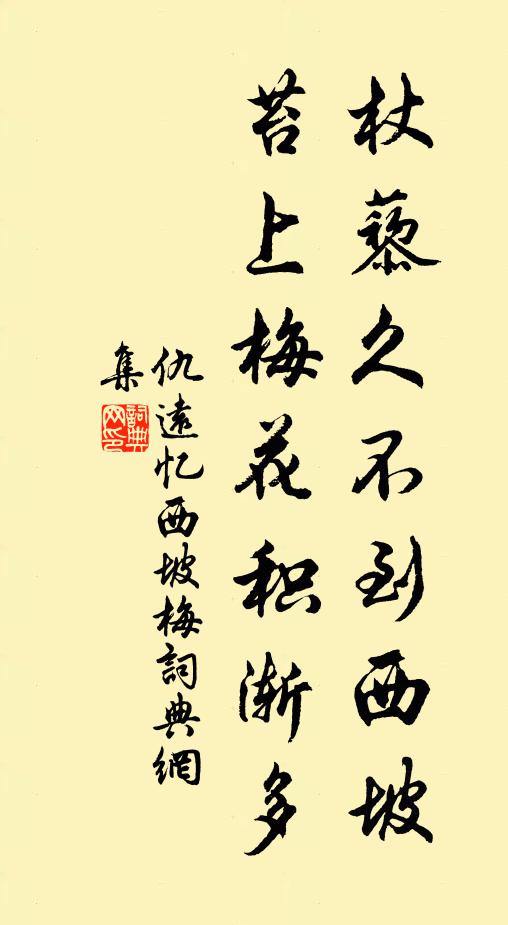 杖藜久不到西坡
苔上梅花积渐多
仇遠忆西坡梅詞典網
集
詞典网印